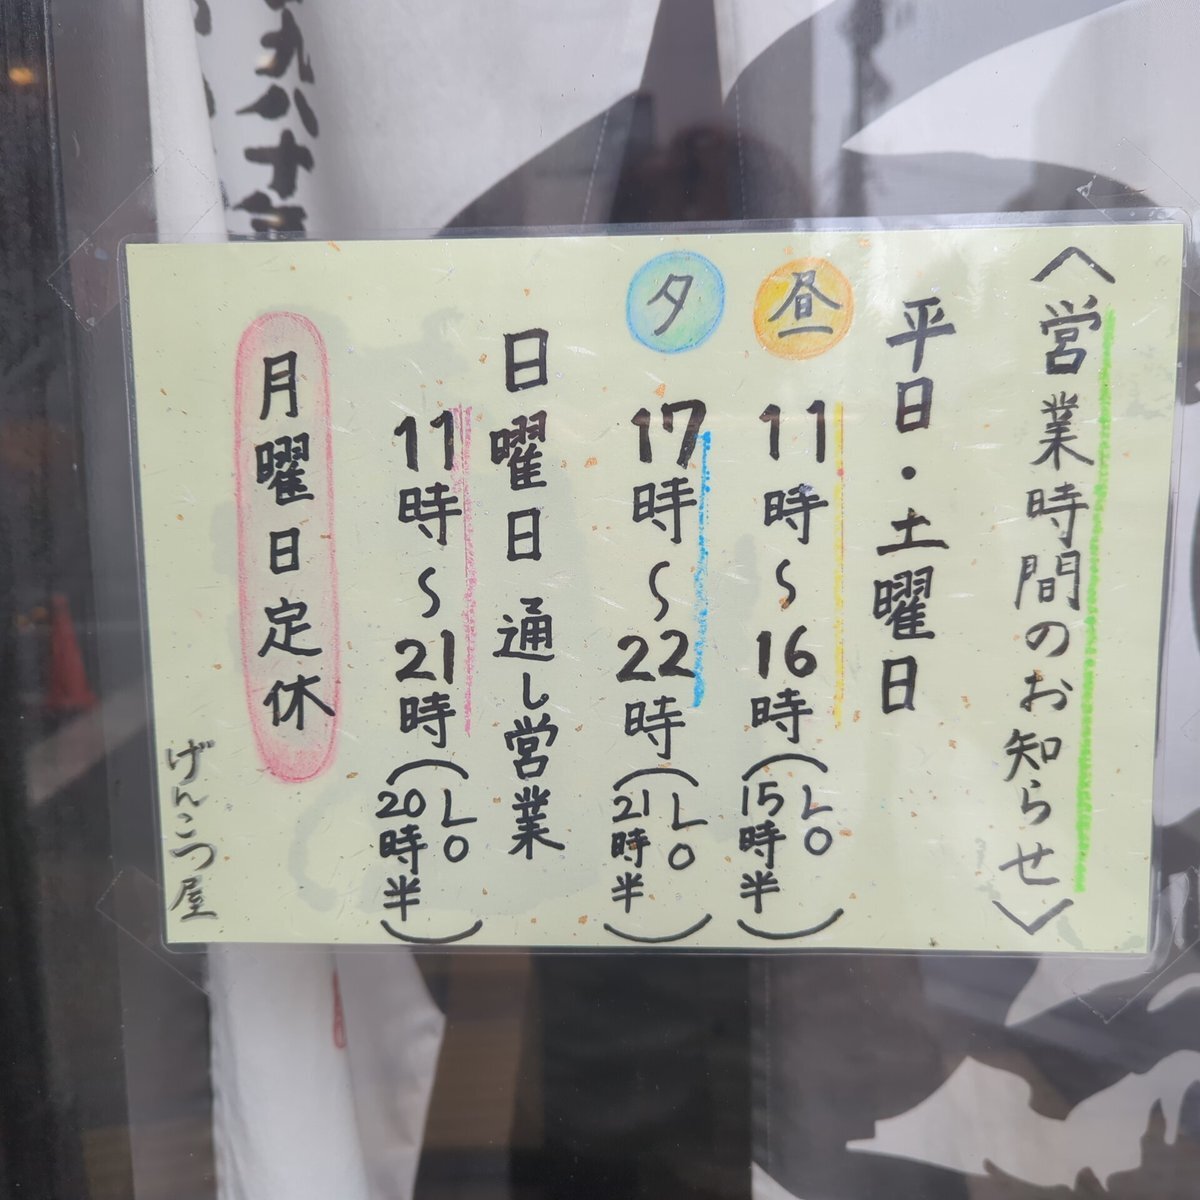 〈営業時間のお知らせ〉
平日・土曜日
昼 11時〜16時(LO 15時半)
夕 17時〜22時(LO 21時半)
日曜日 通し営業
11時〜21時(LO 20時半)
月曜日定休
げんこつ屋
九八十年